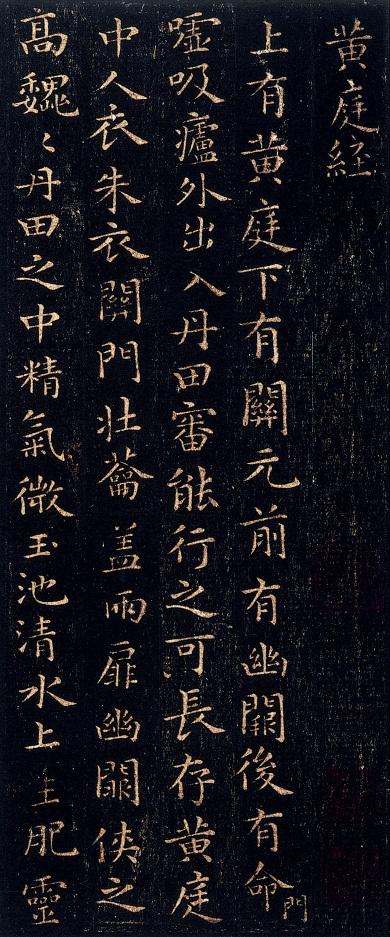 黄庭経
上有黄庭下有關元前有幽闕後有命門
嘘吸廬外出入丹田審能行之可長存黄庭
中人衣朱衣關門壯蘥盖兩扉幽闕侠之
高魏〻丹田之中精氣微玉池清水上生肥靈